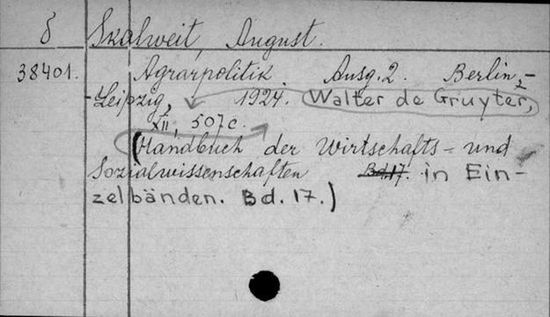 δ Skalweit, August.
38401. Agrarpolitik Ausg. 2. Berlin,-
-Leipzig, 1924. Walter de Gruyter,
XII, 507c.
(Handbuch der Wirtschafts- und
Sozialwissenschaften Bd. 17. in Ein-
zelbänden. Bd. 17.)